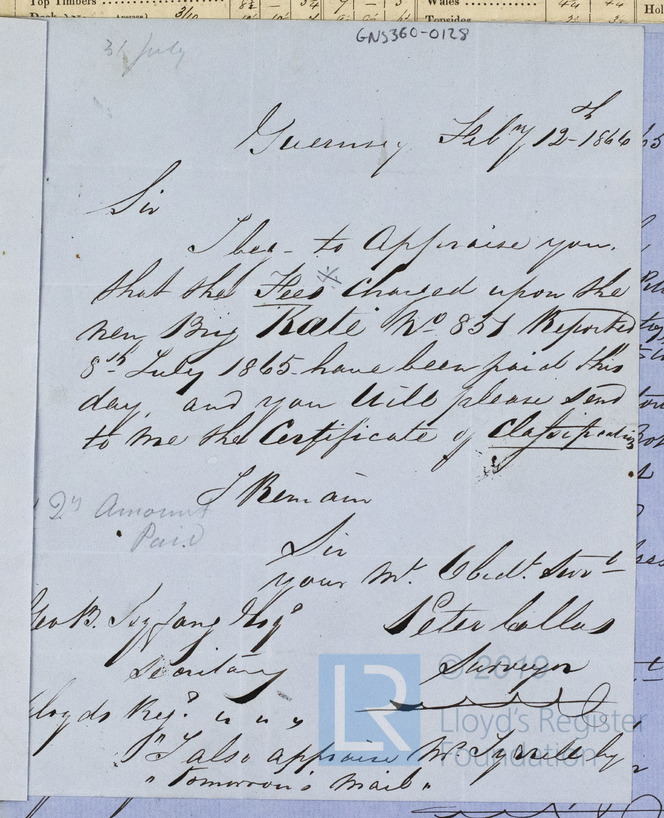 Top Timbers
Wales
Topsides
GNS360-0128
31 July
Guernsey Feby 12th 1866
Sir
I beg to Appraise you
that the Fees Charged upon the
new Brig Kate No 851 Reported
8th July 1865 have been paid this
day, and you Will please send
to me the Certificate of Classification
I Remain
Amount
Paid
Sir
your Mt. Obedt. Servt
Geo B. Esqr
Peter Collas
Secretary
Surveyor
Lloyds Regr
© 2019
LR
Lloyd's Register
Foundation
"I also appraise Mr by
" Tomorrow's Mail "